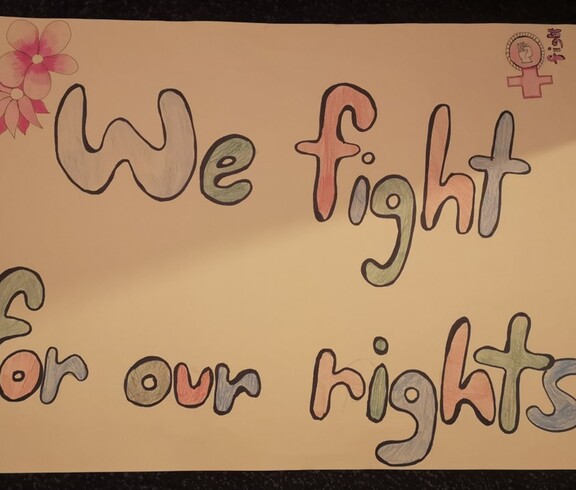 We fight
for our rights
fight